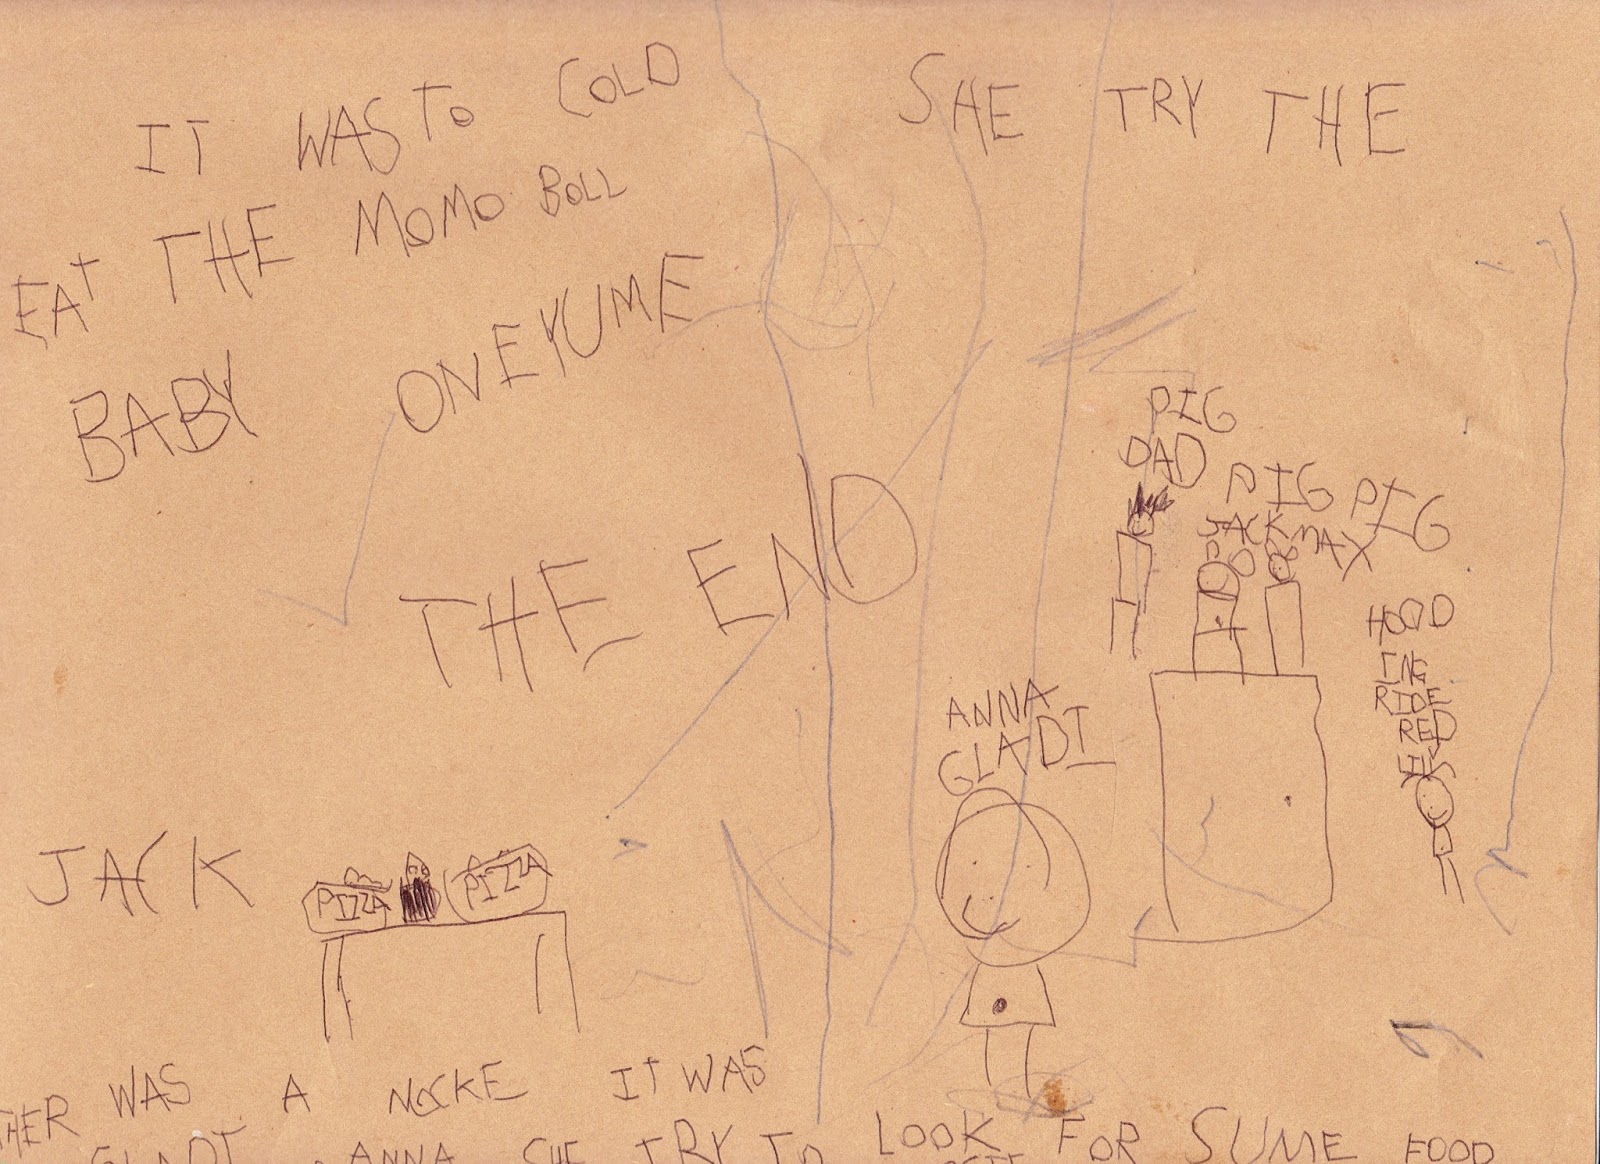 IT WAS TO COLD
EAT THE MOMO BOLL
BABY ONEYUME
THE END
SHE TRY THE
PIG
DAD
PIG
JACK
PIG
MAX
HOOD
ING
RIDE
RED
ANNA
GLADI
JACK
PIZZA
PIZZA
THER WAS A NOCKE IT WAS
GLADI ANNA SHE TRY TO LOOK FOR SUME FOOD